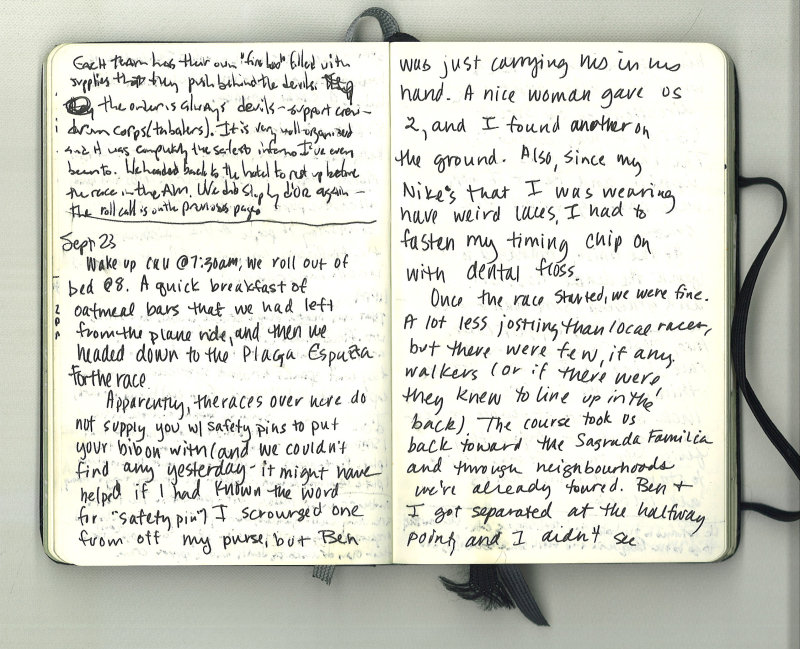 Each team has their own "fire box" filled with
supplies that they push behind the devils.
the order is always devils - support crew -
drum corps (tabalers). It is very well organized
and it was completely the safest inferno I've ever
been to. We headed back to the hotel to rest up before
the race in the AM. We did stop by d'Or again -
the roll call is on the previous page
Sept 23
Wake up call @ 7:30am, we roll out of
bed @8. A quick breakfast of
oatmeal bars that we had left
from the plane ride, and then we
headed down to the Plaça Espuza
for the race
Apparently, the races over here do
not supply you w/ safety pins to put
your bib on with (and we couldn't
find any yesterday - it might have
helped if I had known the word
for "safety pin") I scrourged one
from off my purse, but Ben
was just carrying his in his
hand. A nice woman gave us
2, and I found another on
the ground. Also, since my
Nike's that I was wearing
have weird laces, I had to
fasten my timing chip on
with dental floss.
Once the race started, we were fine.
A lot less jostling than local races,
but there were few, if any
walkers (or if there were
they knew to line up in the
back). The course took us
back toward the Sagrada Familia
and through neighbourhoods
we're already toured. Ben +
I got separated at the halfway
point, and I didn't see